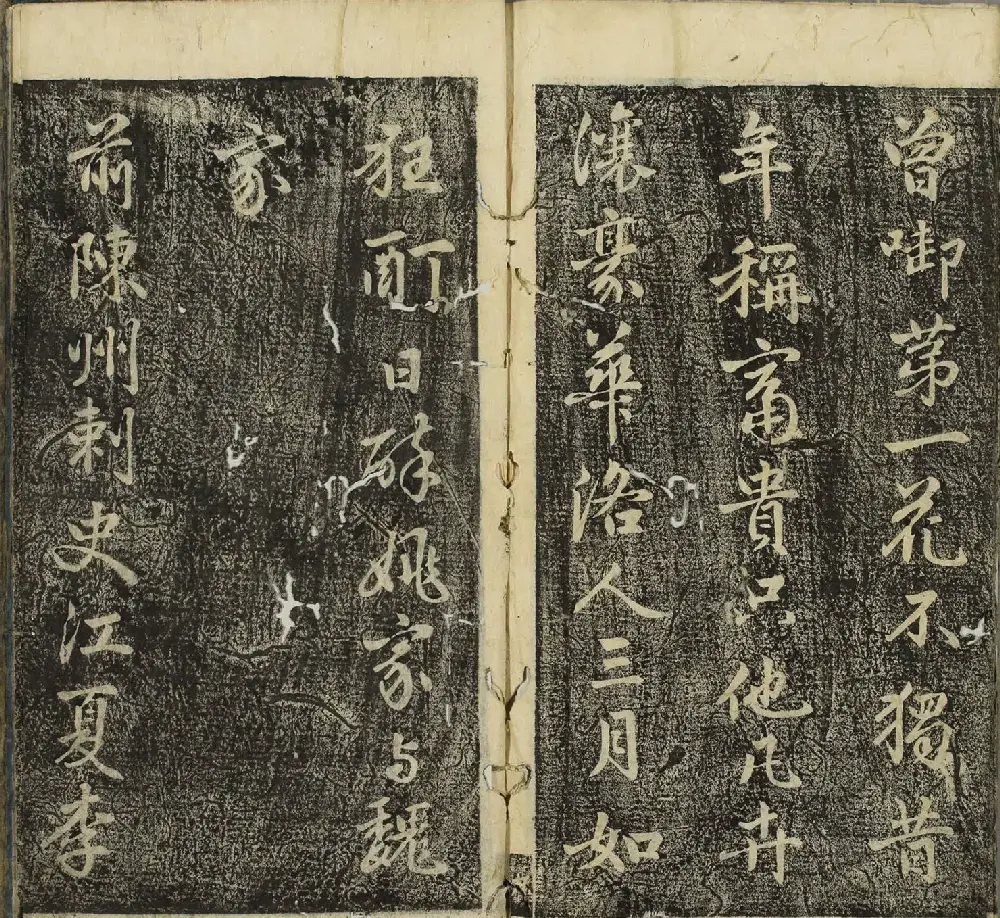 曾啣苐一花不獨昔
年稱富貴只他凡卉
讓豪華洛人三月如
狂酊日醉姚家与魏
家
前陳州刺史江夏李